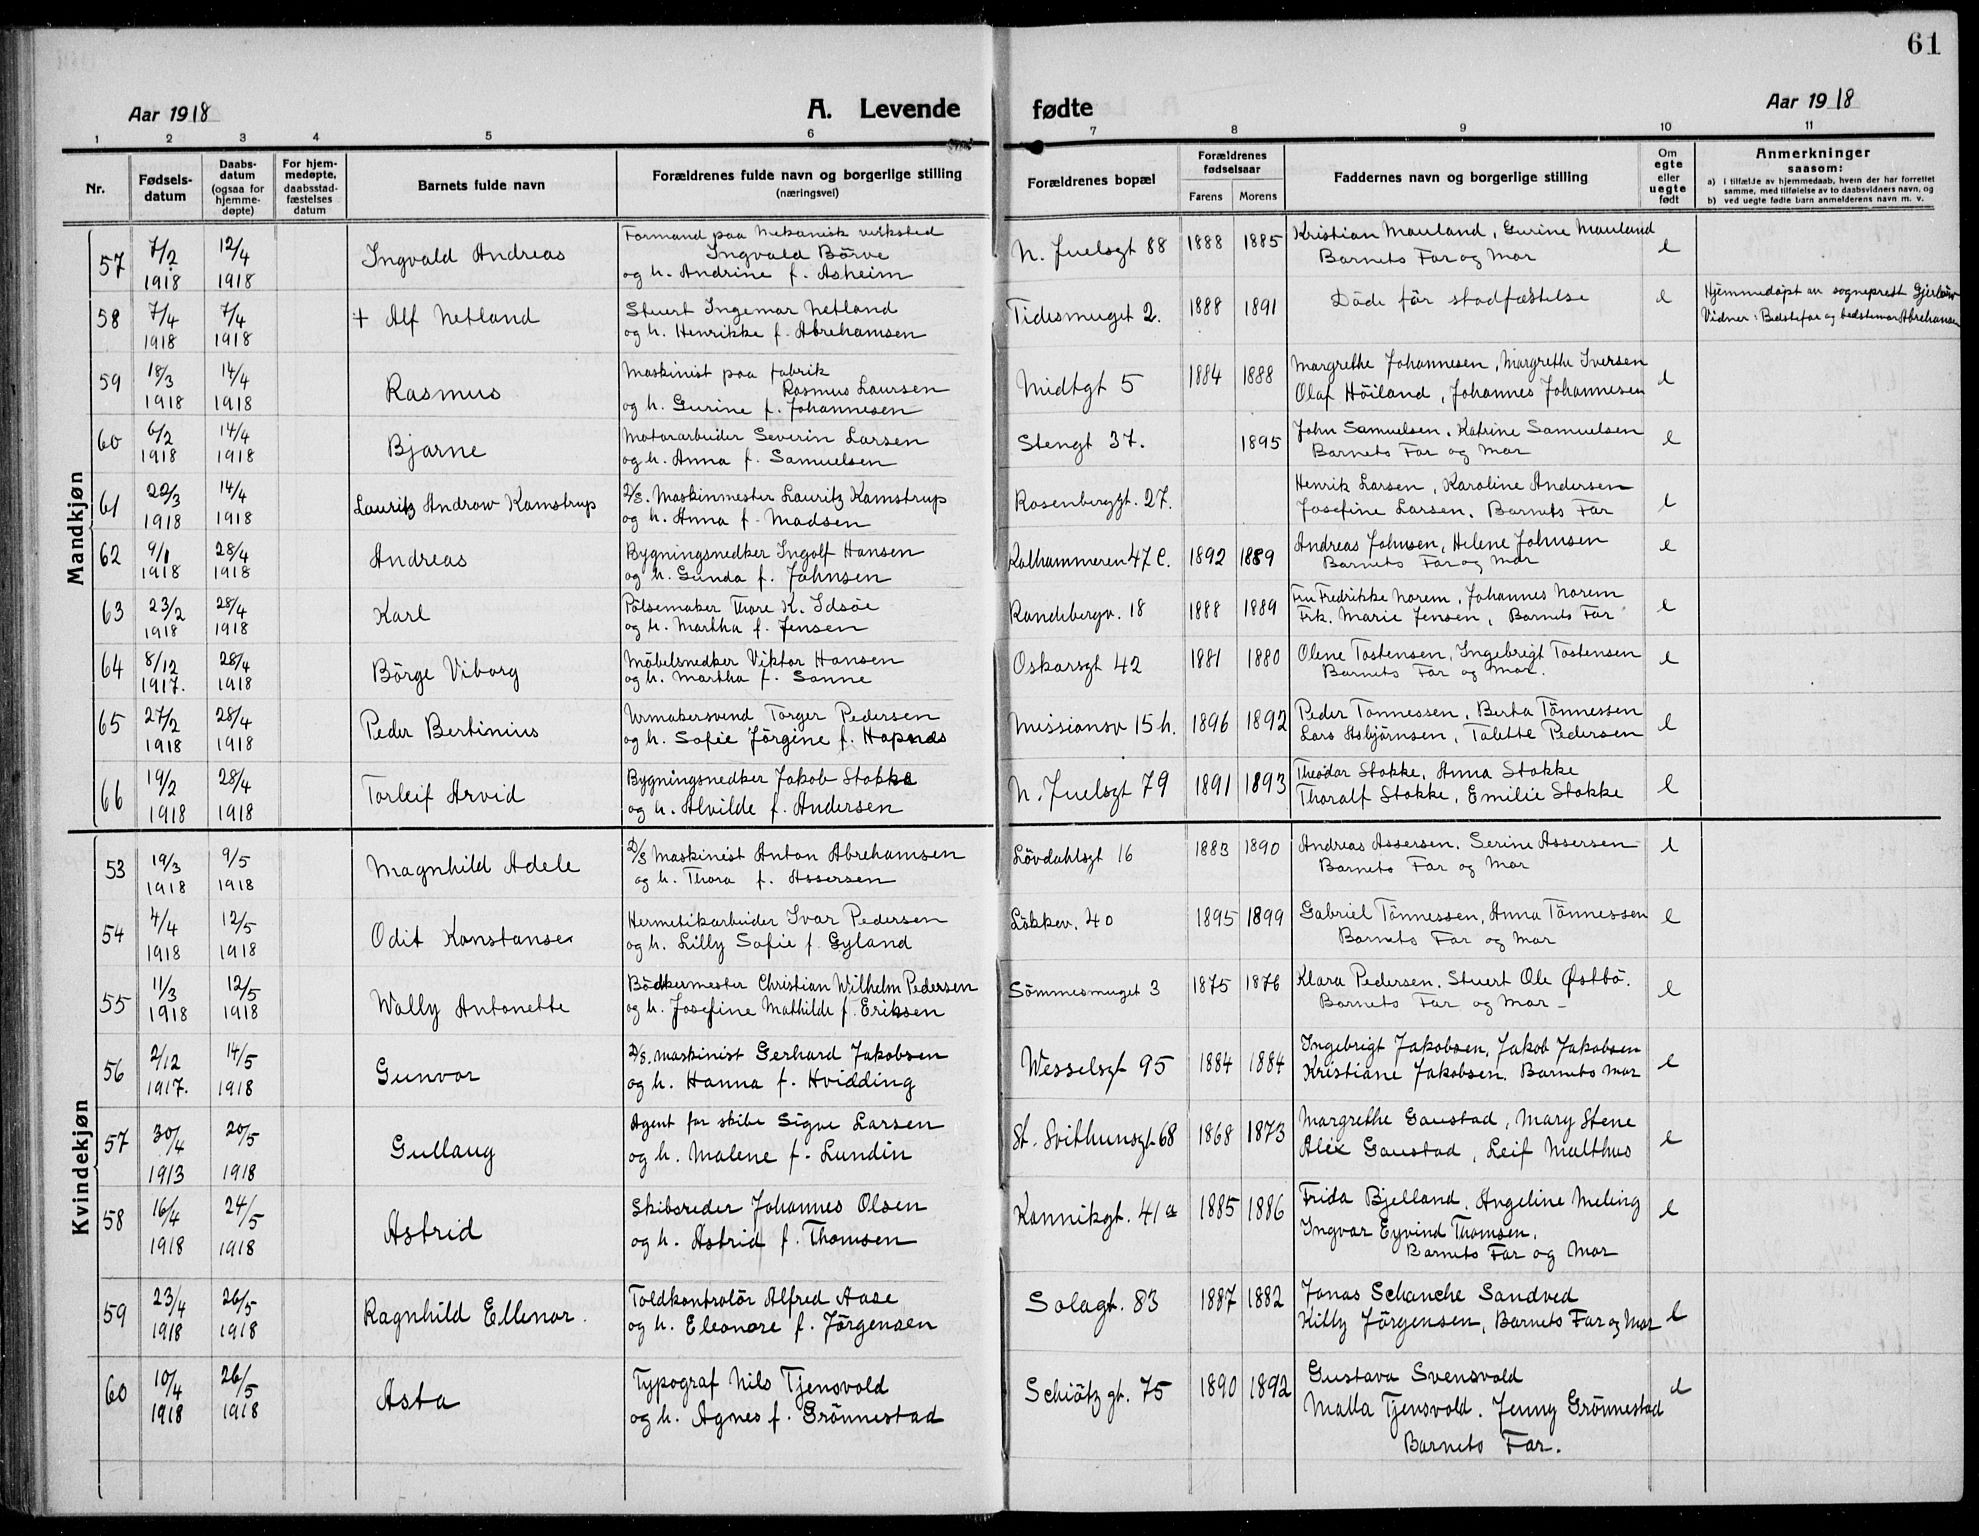 61
Aar 1918 A. Levende fødte Aar 1918
1 2 3 4 5 6 7 8 9 10 11
Nr.
Fødsels-
datum
Daabs-
datum
(ogsaa for
hjemme-
døpte)
For hjem-
medøpte,
daabsstad-
fæstelses
datum
Barnets fulde navn
Forældrenes fulde navn og borgerlige stilling
(næringsvei)
Forældrenes bopæl
Forældrenes
fødselsaar
Farens Morens
Faddernes navn og borgerlige stilling
Om
egte
eller
uegte
født
Anmerkninger
saasom:
a) i tilfælde av hjemmedaab, hvem der har forrettet
samme, med tilføielse av to daabsvidners navn, og
b) ved uegte fødte barn anmelderens navn m. v.
Mandkjøn
57 7/2 1918 12/4 1918 Ingvald Andreas
Formand paa mekanisk verksted
Ingvald Börve
og h. Andrine f. Asheim
N. Juelsgt 88 1888 1885
Kristian Mauland, Gurine Mauland
Barnets Far og Mor
e
58 7/4 1918 7/4 1918 + Alf Netland
Stuert Ingemar Netland
og h. Henrikke f. Abrehamsen
Tidesmuget 2. 1888 1891
Döde för stadfæstelse
e
Hjemmedøpt av sogneprest
Vidner: Bedstefar og bedstemor Abrehamsen
59 18/3 1918 14/4 1918 Rasmus
Maskinist paa fabrik
Rasmus Laursen
og h. Gurine f. Johannesen
Midtgt 5 1884 1888
Margrethe Johannesen, Margrethe Iversen
Olaf Höiland, Johannes Johannesen
e
60 6/2 1918 14/4 1918 Bjarne
Motorarbeider Severin Larsen
og h. Anna f. Samuelsen
Stengt 37. 1895
John Samuelsen, Katrine Samuelsen
Barnets Far og Mor
e
61 22/3 1918 14/4 1918 Lauritz Androw Kamstrup
D/S. Maskinmester Lauritz Kamstrup
og h. Anna f. Madsen
Rosenberggt. 27.
Henrik Larsen, Karoline Andersen
Josefine Larsen, Barnets Far
e
62 9/1 1918 28/4 1918 Andreas
Bygningsnedker Ingolf Hansen
og h. Gunda f. Johnsen
Kalhammeren 47 C. 1892 1889
Andreas Johnsen, Helene Johnsen
Barnets Far og Mor
e
63 23/2 1918 28/4 1918 Karl
Pölsemaker Thore K. Idsöe
og h. Martha f. Jensen
Randebergv. 18 1888 1889
Fru Fredrikke Norem, Johannes Norem
Frk. Marie Jensen, Barnets Far
e
64 8/12 1917. 28/4 1918 Börge Viborg
Möbelsnedker Viktor Hansen
og h. Martha f. Sanne
Oskarsgt 42 1881 1880
Olene Tostensen, Ingebrigt Tostensen
Barnets Far og Mor.
e
65 27/2 1918 28/4 1918 Peder Bertinius
Urmakersvend Torger Pedersen
og h. Sofie Jörgine f. Hapnes
Missionsv 15 h. 1896 1892
Peder Tönnessen, Berta Tönnessen
Lars Asbjörnsen, Talette Pedersen
e
66 19/2 1918 28/4 1918 Torleif Arvid
Bygningsnedker Jakob Stokke
og h. Alvilde f. Andersen
N. Juelsgt 79 1891 1893
Theodor Stokke, Anna Stokke
Thoralf Stokke, Emilie Stokke
e
Kvindekjøn
53 19/3 1918 9/5 1918 Magnhild Adele
D/S Maskinist Anton Abrehamsen
og h. Thora f. Assersen
Lövdahlsgt 16 1883 1890
Andreas Assersen, Serine Assersen
Barnets Far og Mor
e
54 4/4 1918 12/5 1918 Odit Konstanse
Hermetikarbeider Ivar Pedersen
og h. Lilly Sofie f. Gyland
Lökkev. 40 1895 1899
Gabriel Tönnessen, Anna Tönnessen
Barnets Far og Mor
e
55 11/3 1918 12/5 1918 Wally Antonette
Bödkermester Christian Wilhelm Pedersen
og h. Josefine Mathilde f. Eriksen
Sömmesmuget 3 1875 1876
Klara Pedersen. Stuert Ole Østbö.
Barnets Far og Mor -
e
56 2/12 1917. 14/5 1918 Gunvor
D/S. maskinist Gerhard Jakobsen
og h. Hanna f. Hvidding
Wesselsgt 95 1884 1884
Ingebrigt Jakobsen, Jakob Jakobsen
Kristiane Jakobsen. Barnets Mor
e
57 30/4 1913 20/5 1918 Gullaug
Agent for skibe Sigve Larsen
og h. Malene f. Lundin
St. Svithunsgt 68 1868 1873
Margrethe Gaustad, Mary Stene
Alex Gaustad, Leif Malthus
e
58 16/4 1918 24/5 1918 Astrid
Skibsreder Johannes Olsen
og h. Astrid f. Thomsen
Kannikgt. 41 a 1885 1886
Frida Bjelland, Angeline Meling
Ingvar Eyvind Thomsen.
Barnets Far og Mor
e
59 23/4 1918 26/5 1918 Ragnhild Ellenor.
Toldkontrolör Alfred Aase
og h. Eleonore f. Jörgensen
Solagt. 83 1887 1882
Jonas Schanche Sandved
Kitty Jörgensen, Barnets Far og Mor
e
60 10/4 1918 26/5 1918 Asta
Typograf Nils Tjensvold
og h. Agnes f. Grönnestad
Schiötz gt. 75 1890 1892
Gustava Svensvold
Malla Tjensvold. Jenny Grönnestad
Barnets Far.
e